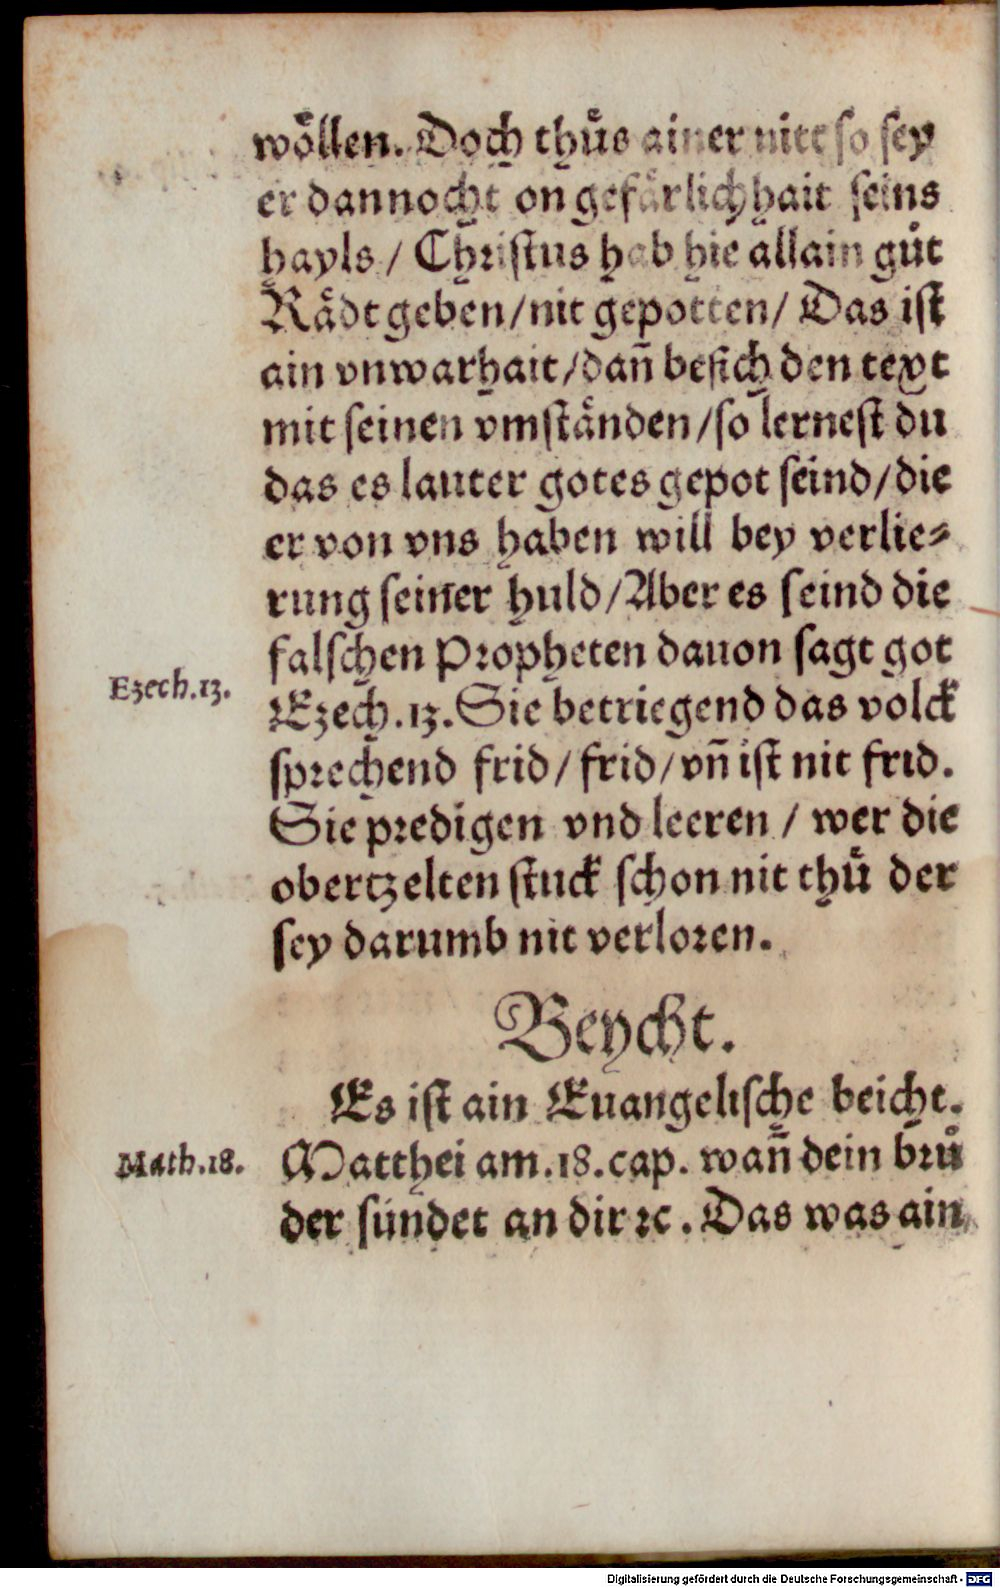 wöllen. Doch thuͦs ainer nitt so sey
er dannocht on gefärlichhait seins
hayls / Christus hab hie allain guͦt
Rädt geben / nit gepotten / Das ist
ain vnwarhait / dañ besich den text
mit seinen vmständen / so lernest du
das es lauter gotes gepot seind / die
er von vns haben will bey verlie⸗
rung seiner huld / Aber es seind die
falschen Propheten dauon sagt got
Ezech.13.
Ezech.13. Sie betriegend das volck
sprechend frid / frid / vñ ist nit frid.
Sie predigen vnd leeren / wer die
obertzelten stuck schon nit thuͦ der
sey darumb nit verloren.
Beycht.
Es ist ain Euangelische beicht.
Math.18.
Matthei am.18.cap. wañ dein bruͦ
der sündet an dir ꝛc. Das was ain
Digitalisierung gefördert durch die Deutsche Forschungsgemeinschaft - DFG